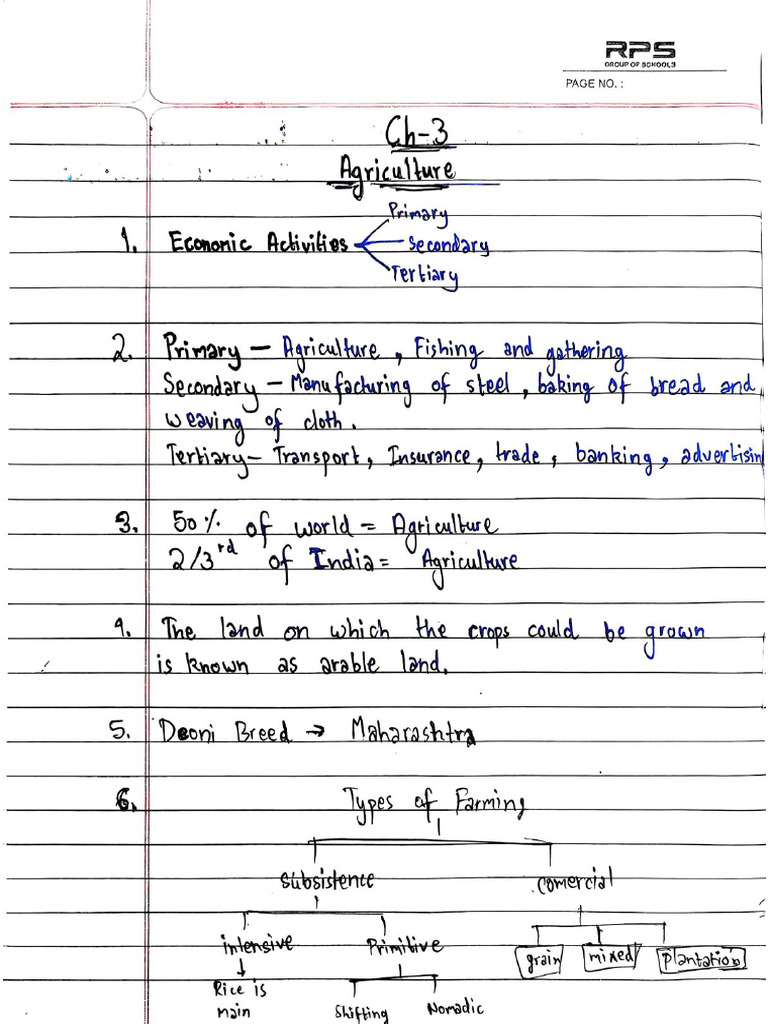 RPS
GROUP OF SCHOOLS
PAGE NO. :
Ch-3
Agriculture
Primary
1. Economic Activities Secondary
Tertiary
2. Primary – Agriculture, Fishing and gathering
Secondary – Manufacturing of steel, baking of bread and
weaving of cloth.
Tertiary – Transport, Insurance, trade, banking, advertisin
3. 50% of world = Agriculture
2/3rd of India = Agriculture
4. The land on which the crops could be grown
is known as arable land.
5. Deoni Breed → Maharashtra
6. Types of Farming
Subsistence Comercial
intensive Primitive grain mixed Plantation
Rice is main Shifting Nomadic